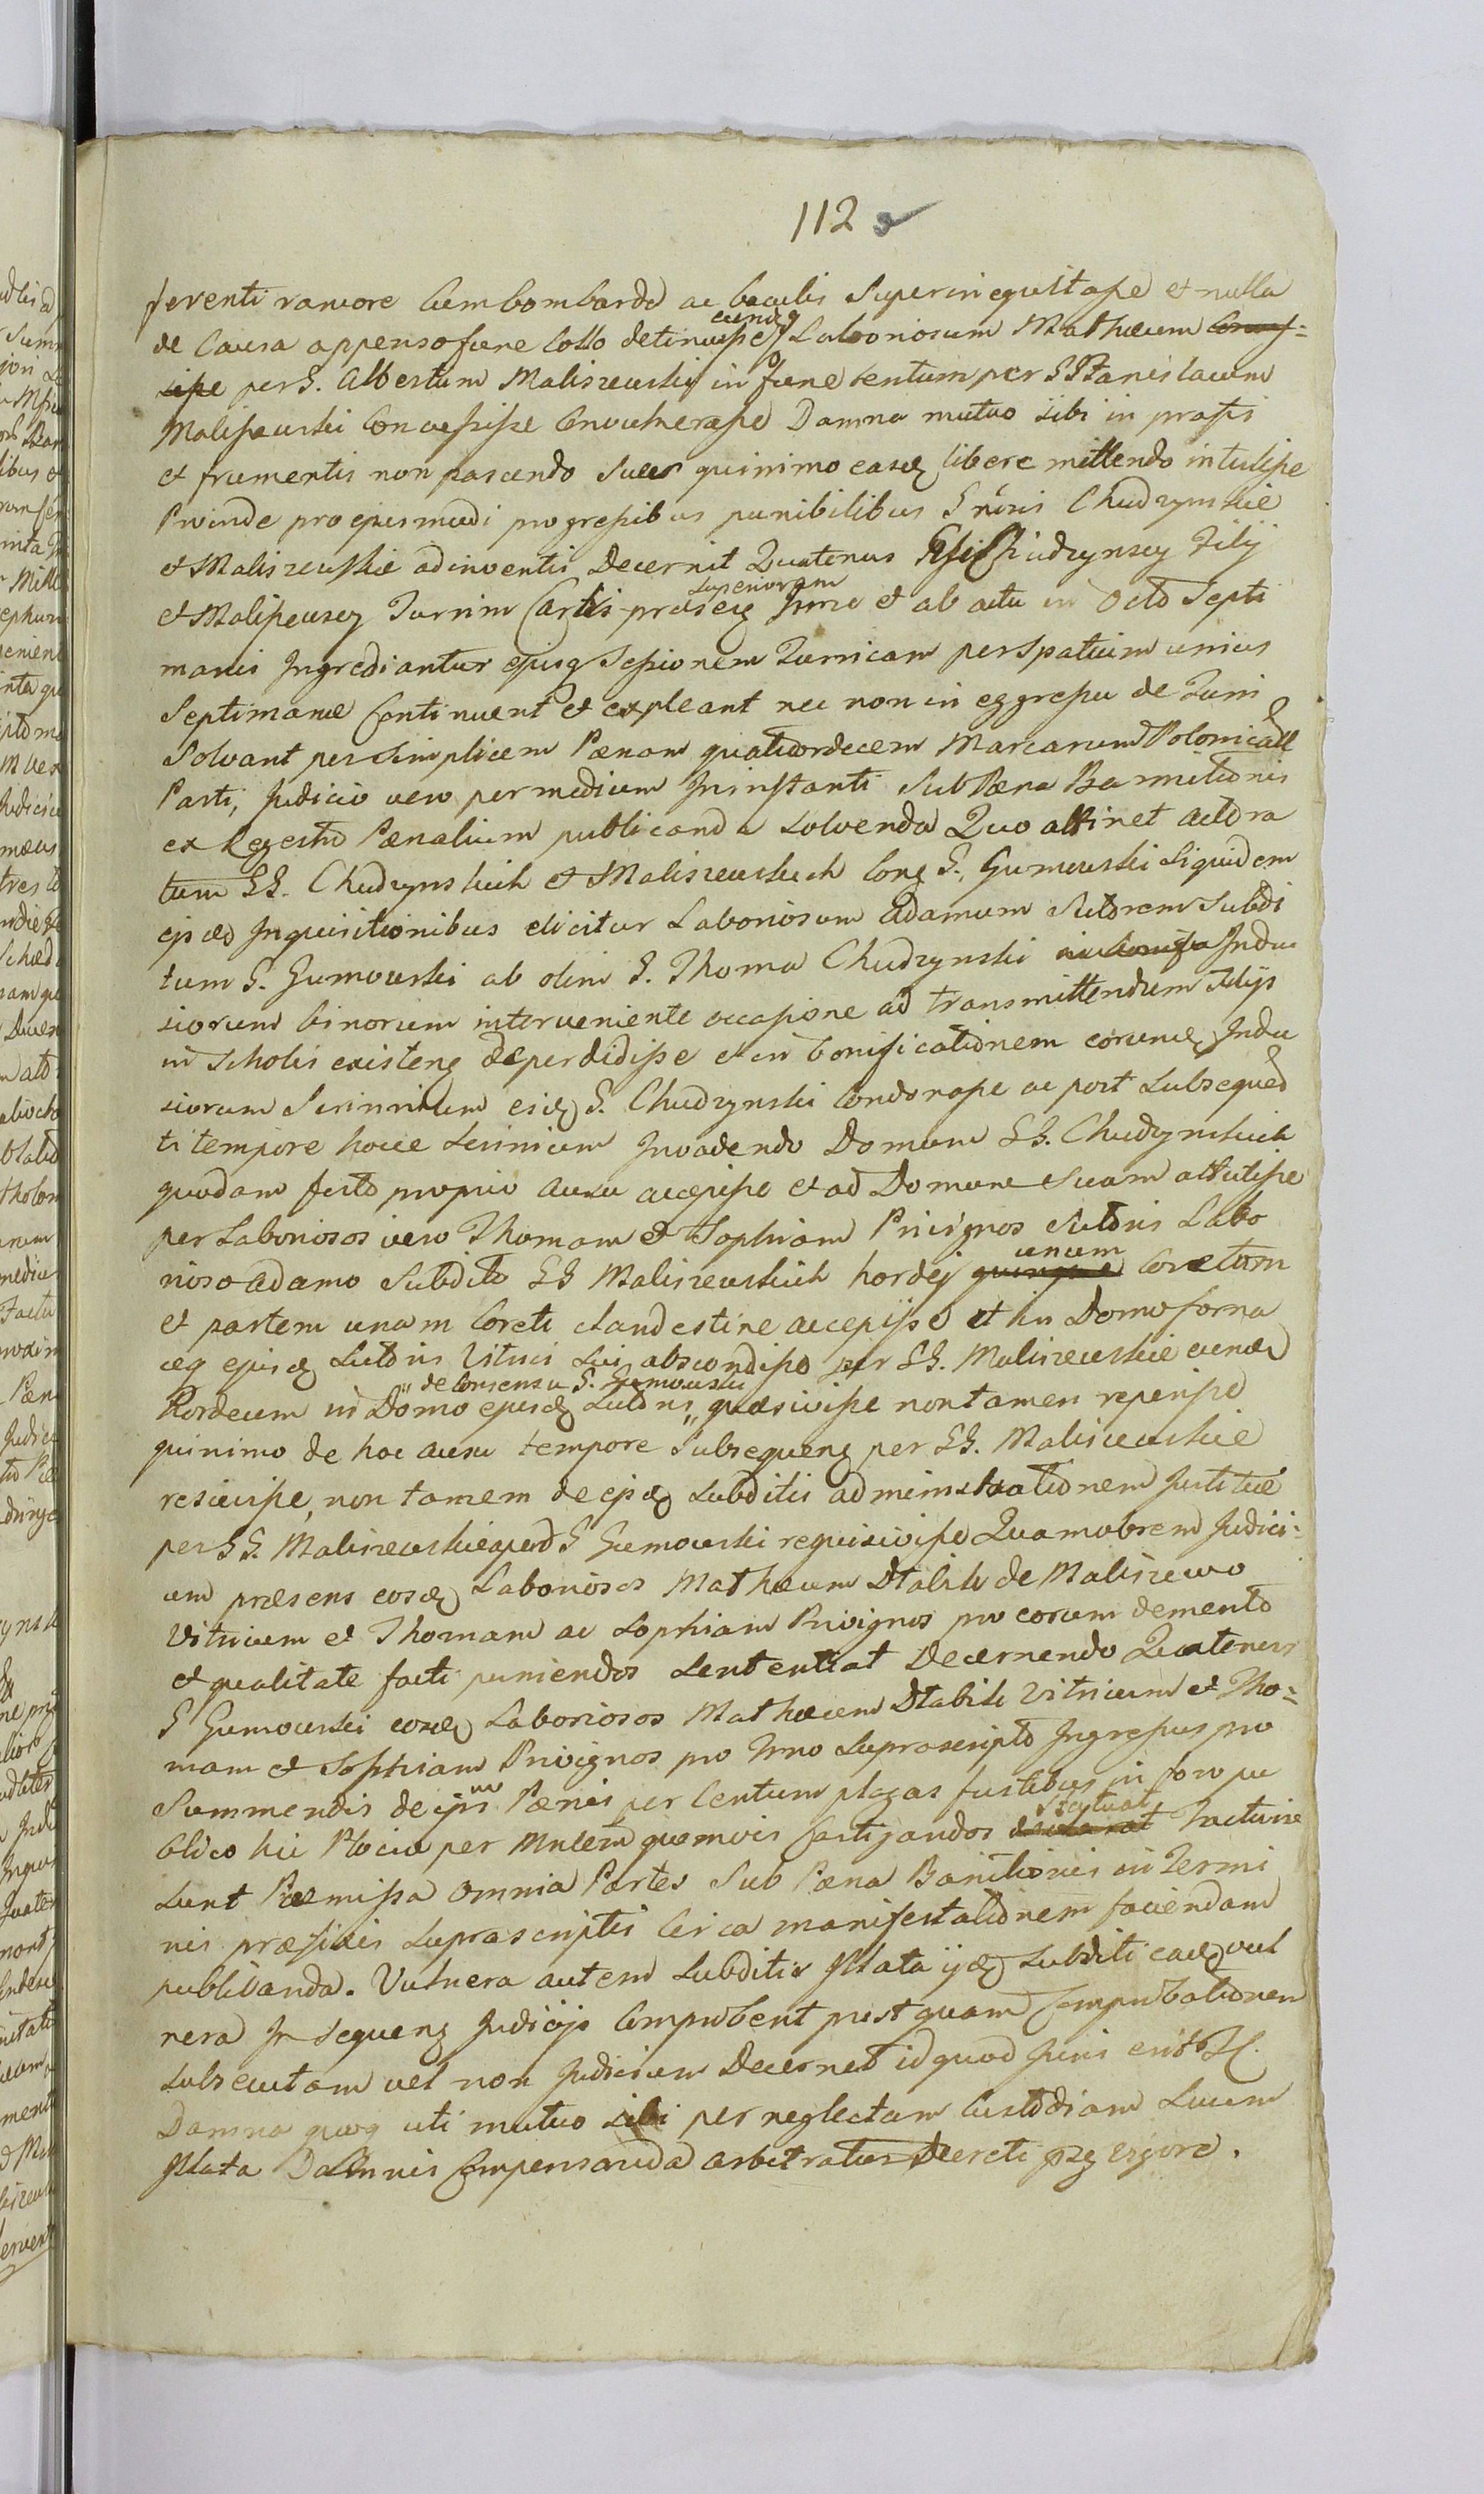 112
ferenti rancore cum bombarda ac baculis Superinequitasse et nulla
de Causa appenso fune Collo detinuisse eundq Laboriosum Mathæum
per G. Albertum Maliszewski in fune tentum per G Stanislaum
Maliszewski Concussisse Convulnerasse Damna mutuo sibi in pratis
et frumentis non pascendo Sues quinimo easq libere mittendo intulisse
Proinde pro ejusmodi progressibus punibilibus Gnrsis Chudzynskie
et Maliszewskie adinventis Decernit Quatenus Gsi Chudzynscy Filij
et Maliszewscy Turrim Castri præsey superiorem hinc et ab actu in Octo Septi
manis Ingrediantur ejusq Sessionem Turricam per Spatium unius
Septimanæ Continuent et expleant nec non in eggressu de Turri
Solvant per simplicem Pænam quatuordecem Marcarum Polonicall
Parti, Judicio vero per medium In instanti Sub Pæna Bannitionis
ex Regestro Pænalium publicanda solvenda Quo attinet actora
tum GG. Chudzynskich et Maliszewskich Cong G. Gumowski Siquidem
ejsd Inquisitionibus elicitur Laboriosum Adamum Sutorem Subdi
tum G. Gumowski ab olim G. Thoma Chudzynski Indu
siorum binorum interveniente occasione ad transmittendum Filijs
in Scholis existeng deperdidisse et in bonificationem eorundq Indu
siorum Scrinium eisdq G. Chudzynski Condonasse ac post subsequed
ti tempore hocce scrinium Invadendo Domum GG. Chudzynskich
quodam festo proprio ausu accepisse et ad Domum Suam attulisse
per Laboriosos vero Thomam et Sophiam Privignos Sutoris Labo
rioso Adamo Subdito GG Maliszewskich hordej unum Coretum
et partem unam Coreti clandestine accepisse et in Domo forna
ceq ejusdq Sutoris Vitrici sui abscondisse per GG. Maliszewskie eundq
Hordeum in Domo ejusdq Sutoris "de Consensu G. Gumowski" quæsivisse non tamen reperisse
quinimo de hoc ausu tempore Subsequeng per GG. Maliszewskie
rescivisse, non tamem de ejsdq subditis administrationem Justitiæ
per GG. Maliszewskie apud G Gumowski requisivisse Quamobrem Judici-
um præsens eosdq Laboriosos Mathæum Stabik de Maliszewo
Vitricum et Thomam ac Sophiam Privignos pro eorum demerito
et qualitate facti puniendos Sententiat Decernendo Quatenus
G Gumowski eosdq Laboriosos Mathæum Stabik Vitricum et Tho-
mam et Sophiam Privignos pro Trno suprascripto Ingressus pro
Summendis de ijsm Pænis per Centum plagas fustibus in foro pu
blico hic Plociæ per Mnlem quemvis castigandos statuat Facturæ
sunt Præmissa omnia Partes Sub Pæna Banitionis in Termi
nis præfixis suprascriptis Circa manifestationem faciendam
publicanda. Vulnera autem Subditis Illata ijdq Subditi eadq vul
nera In sequeng Judicijs Comprobent post quam Comprobationem
Subsecutam vel non Judicium Decernet id quod Juris erit
Damna quoq uti mutuo sibi per neglectam Custodiam Suum
Illata Damnis Compensanda arbitratur Decreti pnq vigore.